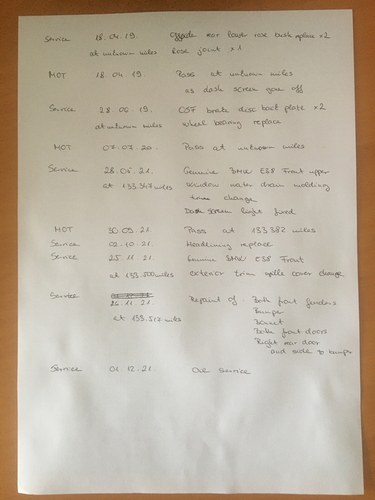 Service 18.04.19. Offside rear lower rose bush replace x2
at unknown miles Rose joint x1
MOT 18.04.19. Pass at unknown miles
as dash screen gone off
Service 28.06.19. OSF brake disc back plate x2
at unknown miles Wheel bearing replace
MOT 07.07.20. Pass at unknown miles
Service 28.04.21. Genuine BMW E38 Front upper
at 133.347 miles window water drain molding
trim change
Dash screen light fixed
MOT 30.09.21 Pass at 133382 miles
Service 02.10.21 Headlining replace
Service 25.11.21 Genuine BMW E38 Front
at 133.500 miles exterior trim grills cover change
Service 26.11.21 Repaint of: Both front fenders
at 133.517 miles Bumper
Bonnet
Both front doors
Right rear door
and side to bumper
Service 01.12.21 Our service